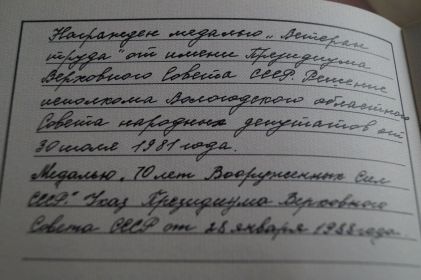 Награжден медалью „Ветеран
труда" от имени Президиума
Верховного Совета СССР. Решение
исполкома Вологодского областного
Совета народных депутатов от
30 июля 1981 года.
Медалью „70 лет Вооруженных Сил
СССР." Указ Президиума Верховного
Совета СССР от 28 января 1988 года.